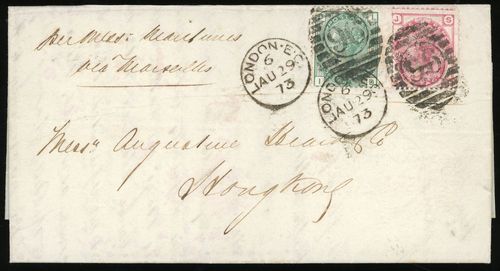 per Mess. Maritimes
via Marseilles
LONDON·E.C
6
AU 29
73
LONDON·E.C
6
AU 29
73
J S
Messrs Augustine Heard & Co
Hong Kong